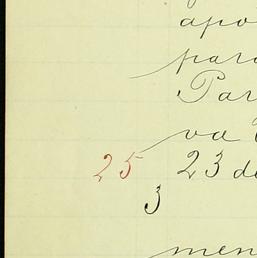 apo
para
Par
va
25 23 de
3
men